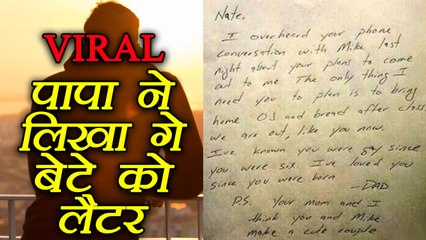 VIRAL
पापा ने
लिखा गे
बेटे को
लैटर
Nate,
I overheard your phone
conversation with Mike last
night about your plans to come
out to me. The only thing I
need you to plan is to bring
home OJ and bread after class.
we are out, like you now.
I've known you were gay since
you were six I've loved you
since you were born
-DAD
P.S. Your mom and I
think you and Mike
make a cute couple